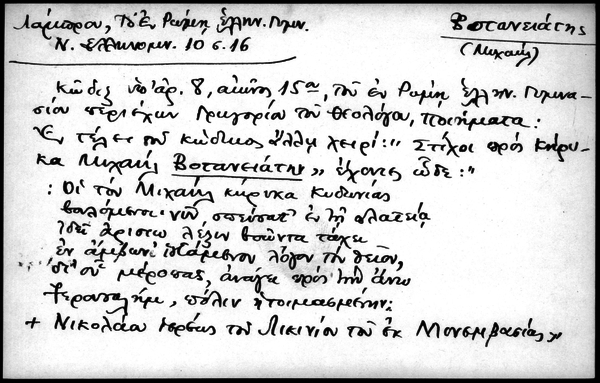 Λάμπρου, Τὸ ἐν Ρώμῃ ἑλλην. Γυμν.
Ν. Ἑλληνομν. 10 σ. 16
Βοτανειάτης
(Μιχαήλ)
Κῶδιξ ὑπ' ἀρ. 8, αἰῶνος 15ου, τοῦ ἐν Ρώμῃ ἑλλην. Γυμνα-
σίου περιέχων Γρηγορίου τοῦ Θεολόγου, ποιήματα:
Ἐν τέλει τοῦ κώδικος ἄλλῃ χειρί: " Στίχοι πρὸς κήρυ-
κα Μιχαὴλ Βοτανειάτην " ἔχοντες ὧδε: "
: Οἱ τὸν Μιχαὴλ κήρυκα Κυδωνίας
βουλόμενοι νῦν σπεύσατ' ἐν τῇ πλατείᾳ
ἰδεῖ ἀρίστῳ λέξιν βοῶντα τάχει
ἐν ἄμβωνι ἱστάμενον λόγον τὸν θεῖον,
δι' οὗ μέροπας, ἀνάγει πρὸς τὴν ἄνω
Ἱερουσαλήμ, πόλιν ἡτοιμασμένην:
+ Νικολάου ἱερέως τοῦ Λικινίου τοῦ ἐκ Μονεμβασίας "